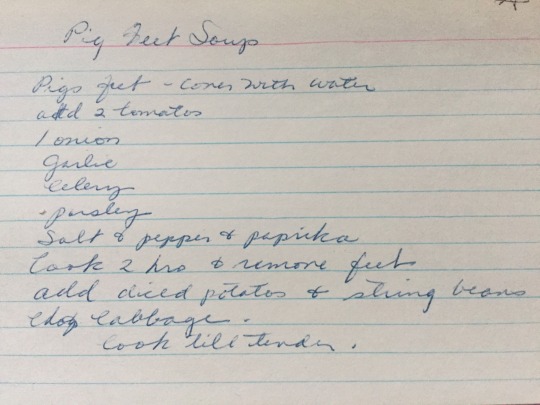 Pig Feet Soup
Pigs feet - cover with water
add 2 tomatos
1 onion
Garlic
Celery
- parsley
Salt & pepper & paprika
Cook 2 hrs & remove feet
add diced potatos & string beans
chop Cabbage.
Cook till tender.